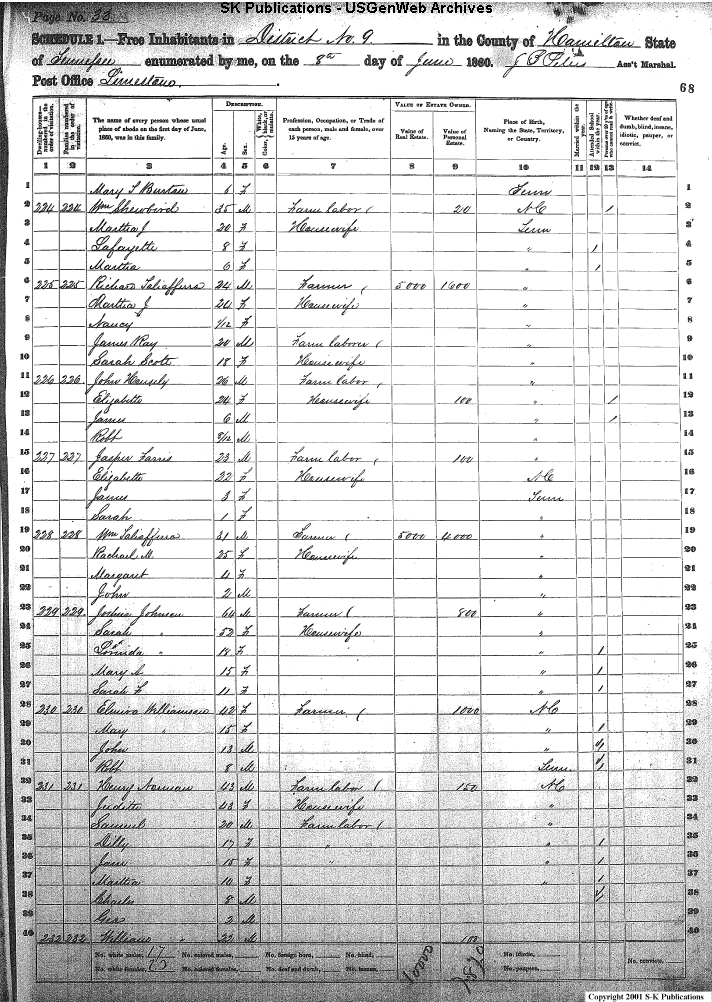 SK Publications - USGenWeb Archives
Page No. 33
SCHEDULE 1.—Free Inhabitants in District No. 9 in the County of Hamilton State
of Tennessee enumerated by me, on the 8th day of June 1860. Ass't Marshal.
Post Office Limestone
68
Dwelling-houses—numbered in the order of visitation.
Families numbered in the order of visitation.
The name of every person whose usual place of abode on the first day of June, 1860, was in this family.
DESCRIPTION.
Age.
Sex.
Color, White, black, or mulatto.
Profession, Occupation, or Trade of each person, male and female, over 15 years of age.
VALUE OF ESTATE OWNED.
Value of Real Estate.
Value of Personal Estate.
Place of Birth, Naming the State, Territory, or Country.
Married within the year.
Attended School within the year.
Whether deaf and dumb, blind, insane, idiotic, pauper, or convict.
1 2 3 4 5 6 7 8 9 10 11 12 13 14
1 Mary 6 F Tenn 1
2 224 224 Wm 35 M Farm labor 20 NC / 2
3 Martha J 20 F Housewife Tenn 3
4 Lafayette 8 F " 1 4
5 Martha 6 F " 1 5
6 225 225 Richard Taliafferro 24 M Farmer 5000 1600 " 6
7 Martha J 24 F Housewife " 7
8 Nancy F " 8
9 James Ray 20 M Farm laborer " 9
10 Sarah Scott 18 F Housewife " 10
11 226 226 John Hensely 26 M Farm labor " 11
12 Elizabeth 24 F Housewife 100 " / 12
13 James 6 M " / 13
14 Robt M " 14
15 227 227 Jasper Farris 23 M Farm labor 100 " 15
16 Elizabeth 22 F Housewife NC 16
17 James 3 F Tenn 17
18 Sarah 1 F " 18
19 228 228 Wm Taliafferro 31 M Farmer 5000 4000 " 19
20 Rachael M. 25 F Housewife " 20
21 Margaret 4 F " 21
22 John 2 M " 22
23 229 229 Johnson 64 M Farmer 800 " 23
24 Sarah " 52 F Housewife " 24
25 " 18 F " 1 25
26 Mary 15 F " 1 26
27 Sarah F 11 F " 1 27
28 230 230 Elmira Williamson 42 F Farmer 1000 NC 28
29 Mary " 15 F " 1 29
30 John 13 M " 1 30
31 Robt 8 M Tenn 1 31
32 231 231 Henry Norman 43 M Farm labor 150 NC 32
33 Judith 43 F Housewife " 33
34 Samuel 20 M Farm labor " 34
35 Dilly 17 F " " 1 35
36 Jane 15 F " " 1 36
37 Martha 10 F " 1 37
38 Charles 8 M 1 38
39 Geo 2 M 39
40 232 232 William " 22 M 100 40
No. white males, 17 No. colored males, No. foreign born, No. blind, 10000 No. idiotic, No. convicts,
No. white females, 23 No. colored females, No. deaf and dumb, No. insane, No. paupers,
Copyright 2001 S-K Publications